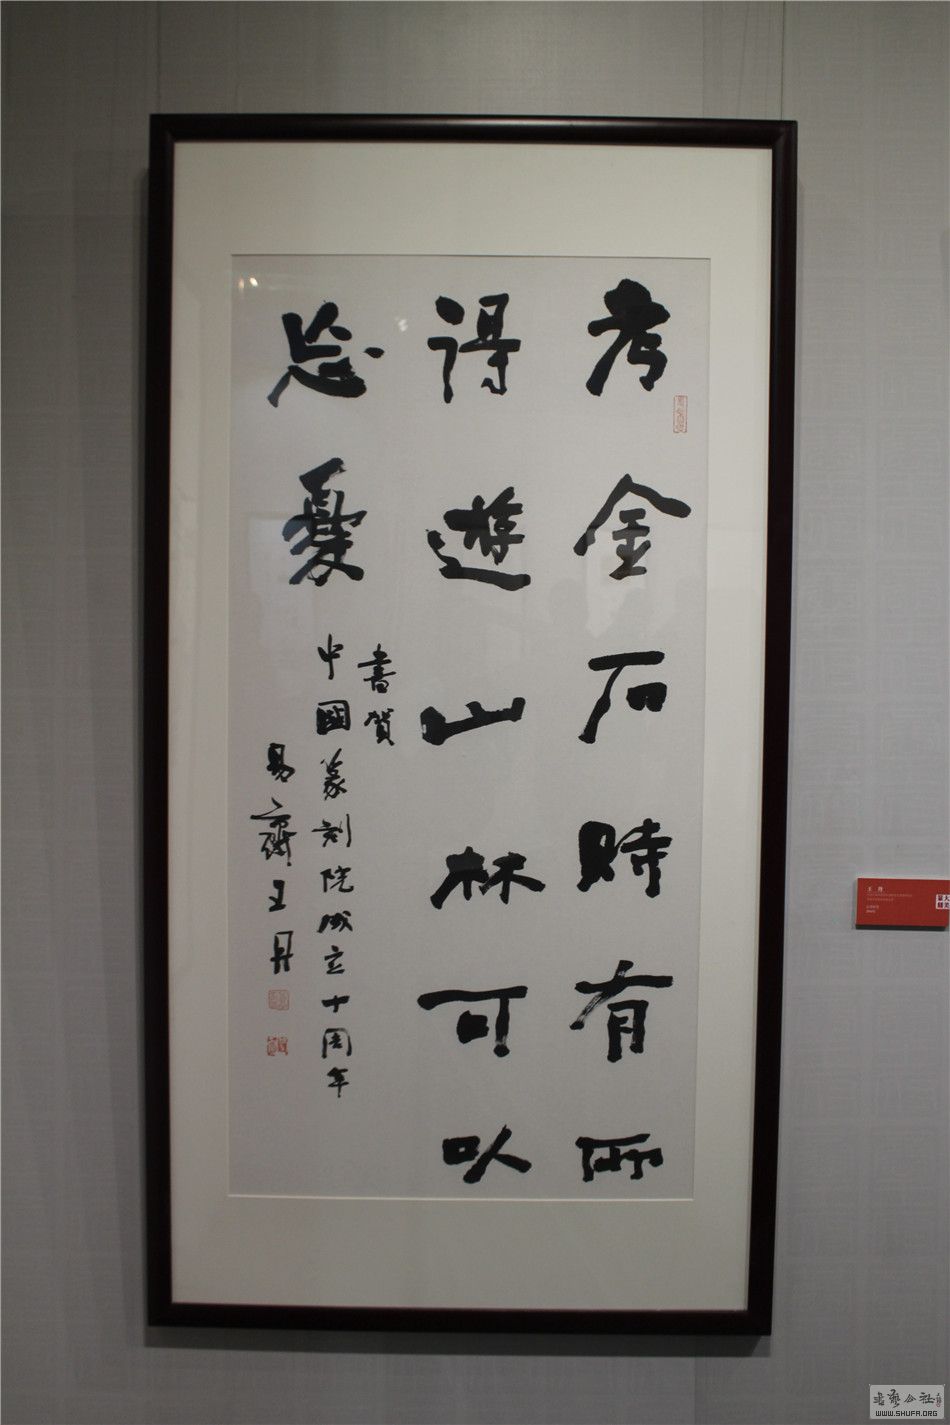 考金石時有所
得遊山林可以
忘憂
書賀
中國篆刻院成立十周年
易齋王丹
王 丹
WWW.SHUFA.ORG